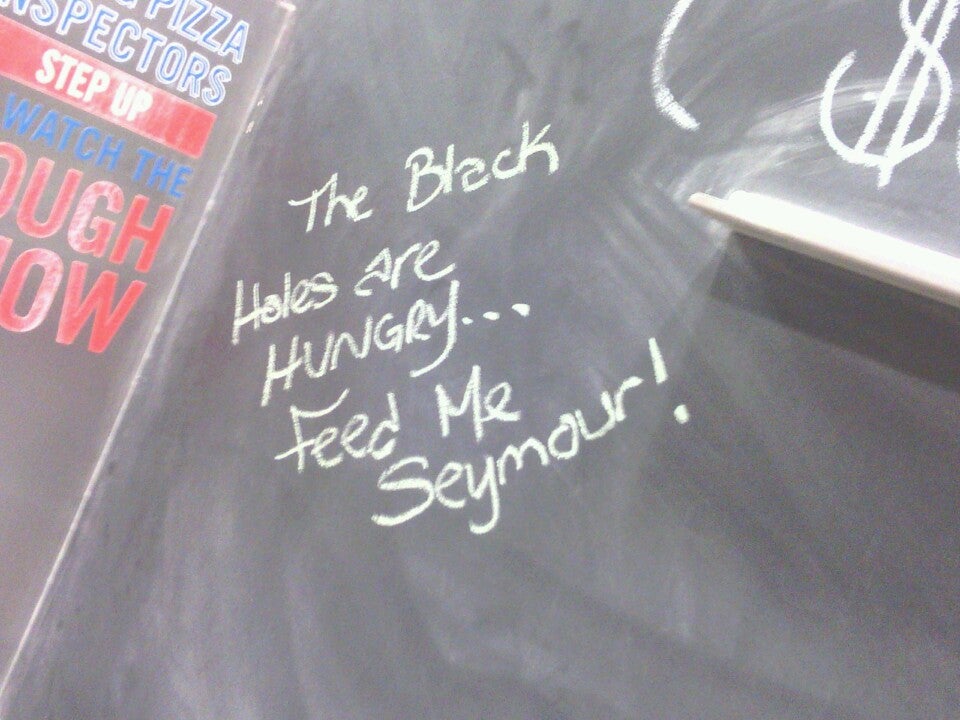 PIZZA
INSPECTORS
STEP UP
WATCH THE
OUGH
OW
The Black
Holes Are
HUNGRY...
Feed Me
Seymour!
$